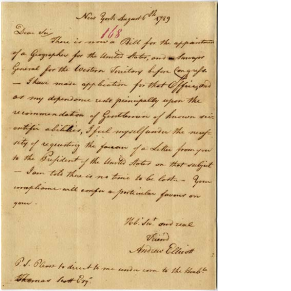 New York August 6th 1789
168
Dear Sir
There is now a Bill for the appointment
of a Geographer for the United States, and Surveyor
General for the Western Territory before Congress
I have made application for that Office, and
as my dependence rests principally upon the
recommendation of Gentlemen of known sci-
entific abilities, I feel myself under the neces-
sity of requesting the favour of a Letter from you
to the President of the United States on that subject
I am told there is no time to be lost. Your
compliance will confer a particular favour on
your
Hble Servt and real
Friend
Andrew Ellicott
P.S. Please to direct to me under cover to the Honble
Thomas Scott Esqr